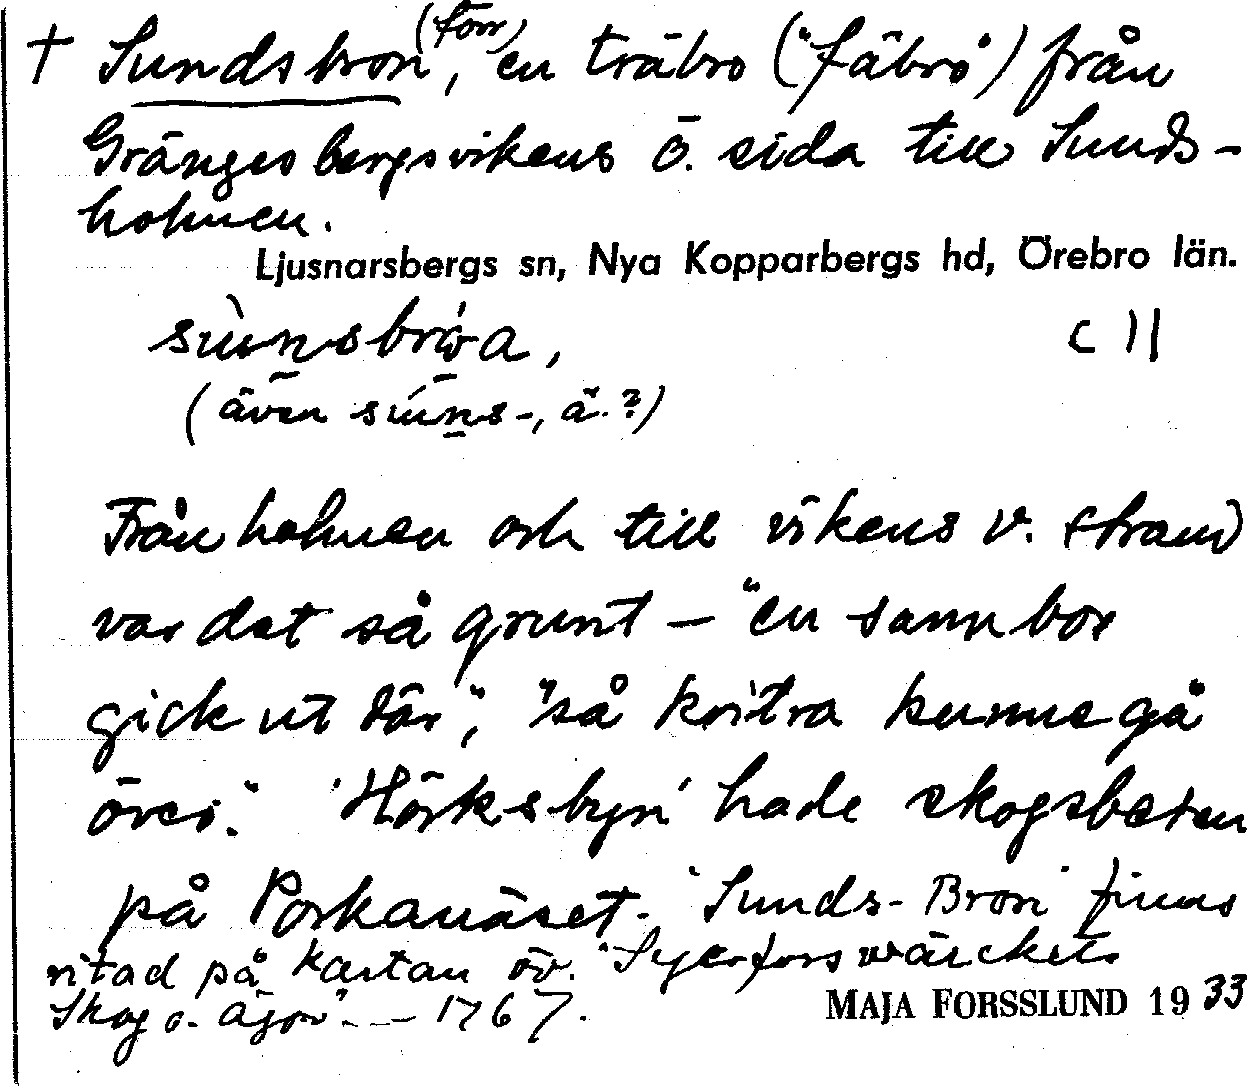 † Sundsbron (förr), en träbro ("fäbro") från
Grängesbergsvikens ö. sida till Sunds-
holmen.
Ljusnarsbergs sn, Nya Kopparbergs hd, Örebro län.
c 11
(även
Från holmen och till vikens v. strand
var det så grunt – "en sann box
gick ut där", "så kritra kunne gå
över." 'Hörksbyn' hade skogsbeten
på Porkanäset. "Sunds-Bron" finns
ritad på kartan öv. "Syerforswärckets
Skog o. Ägor" — 1767.
MAJA FORSSLUND 1933